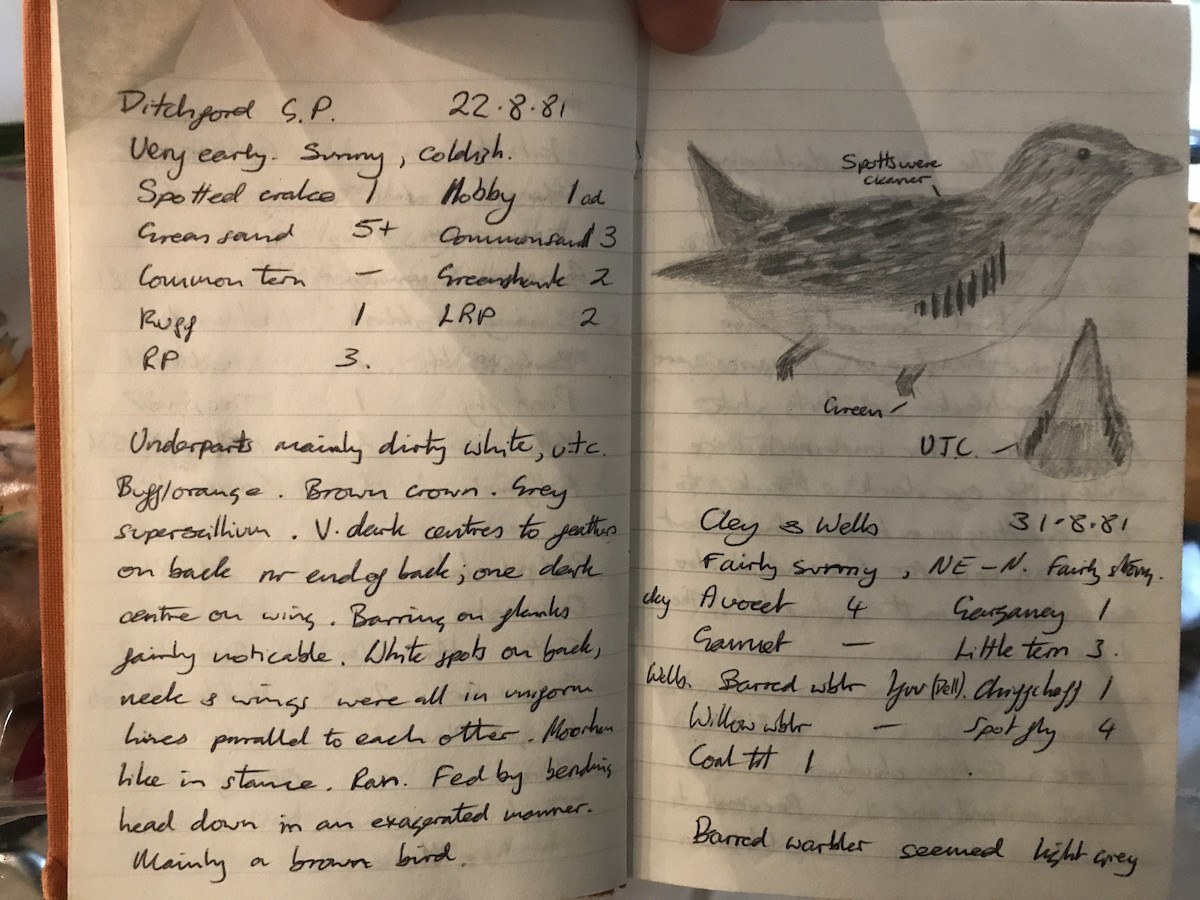 Ditchford S.P. 22.8.81
Very early. Sunny, Coldish.
Spotted crake 1 Hobby 1 ad
Green sand 5+ Common sand 3
Common tern — Greenshank 2
Ruff 1 LRP 2
RP 3.
Underparts mainly dirty white, u.t.c.
Buff/orange. Brown crown. Grey
superscillium. V. dark centres to feathers
on back nr end of back; one dark
centre on wing. Barring on flanks
fairly noticable. White spots on back,
neck & wings were all in uniform
lines parallel to each other. Moorhen
like in stance. Ran. Fed by bending
head down in an exagerated manner.
Mainly a brown bird.
Spotts were
cleaner
Green
U.T.C.
Cley & Wells 31.8.81
Fairly sunny, NE-N. Fairly strong.
Cley Avocet 4 Garganey 1
Gannet — Little tern 3.
Wells. Barred wblr 1juv (Dell). Chiffchaff 1
Willow wblr — Spot fly 4
Coal tit 1
Barred warbler seemed light grey